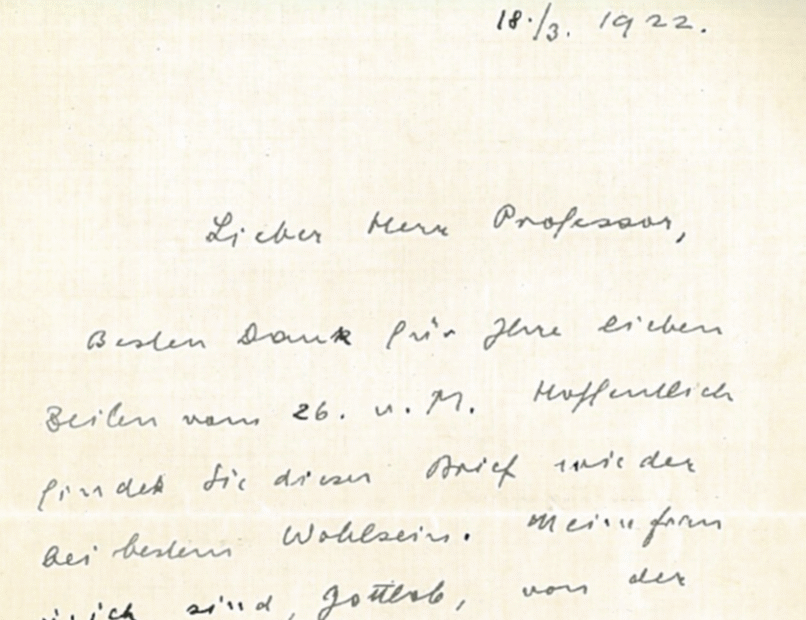 18./3. 1922.
Lieber Herr Professor,
Besten Dank für Ihre lieben
Zeilen vom 26. v. M. Hoffentlich
findet Sie dieser Brief wieder
bei bestem Wohlsein. Meine Frau
sind, Gottlob, von der